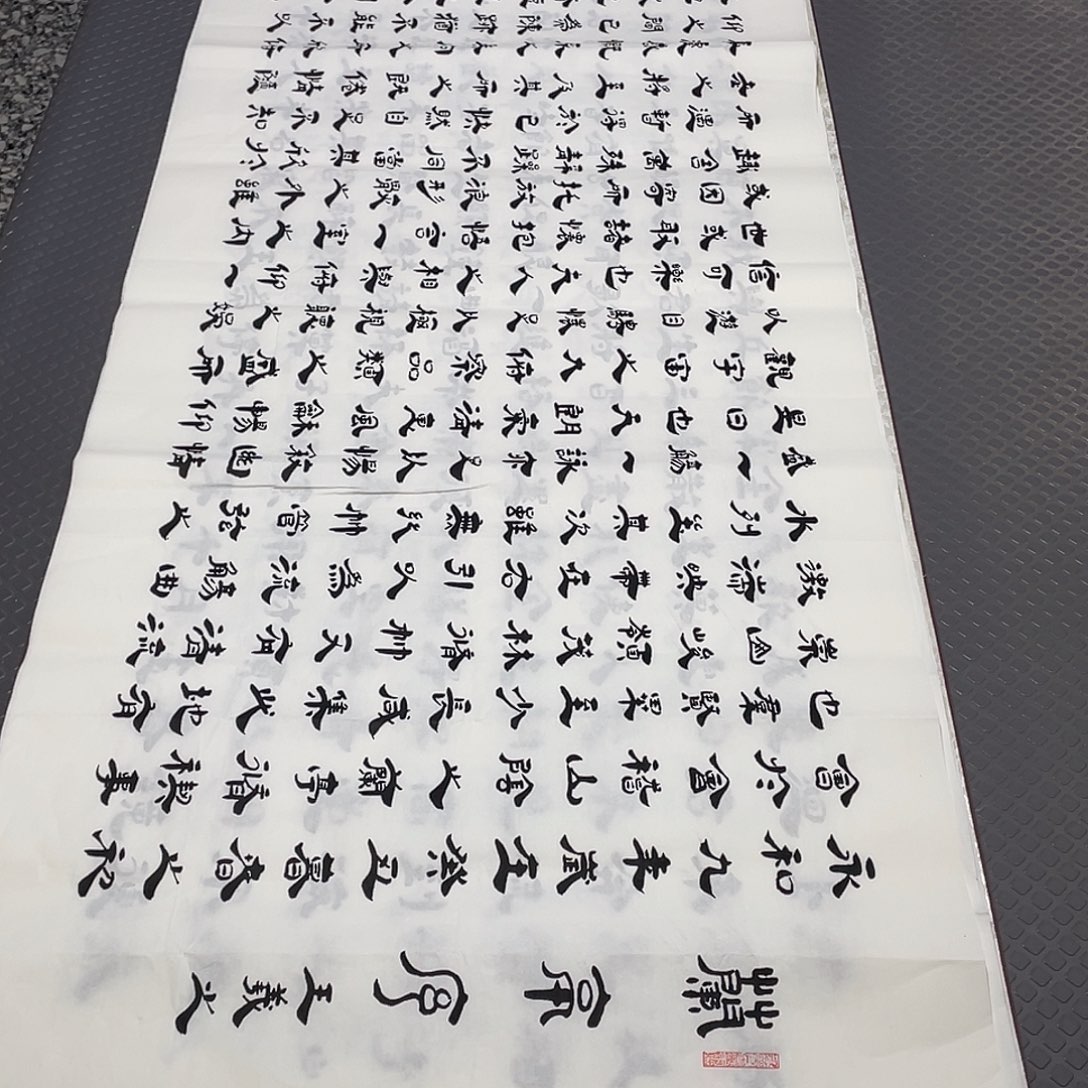 蘭亭序 王羲之
永和九年歲在癸丑暮春之初
會於會稽山陰之蘭亭脩禊事
也羣賢畢至少長咸集此地有
崇山峻領茂林脩竹又有清流
激湍映帶左右引以為流觴曲
水列坐其次雖無絲竹管弦之
盛一觴一詠亦足以暢敘幽情
是日也天朗氣清惠風和暢仰
觀宇宙之大俯察品類之盛所
以遊目騁懷足以極視聽之娛
信可樂也夫人之相與俯仰一
世或取諸懷抱悟言一室之內
或因寄所託放浪形骸之外雖
趣舍萬殊靜躁不同當其欣於
所遇暫得於己快然自足不知
老之將至及其所之既倦情隨